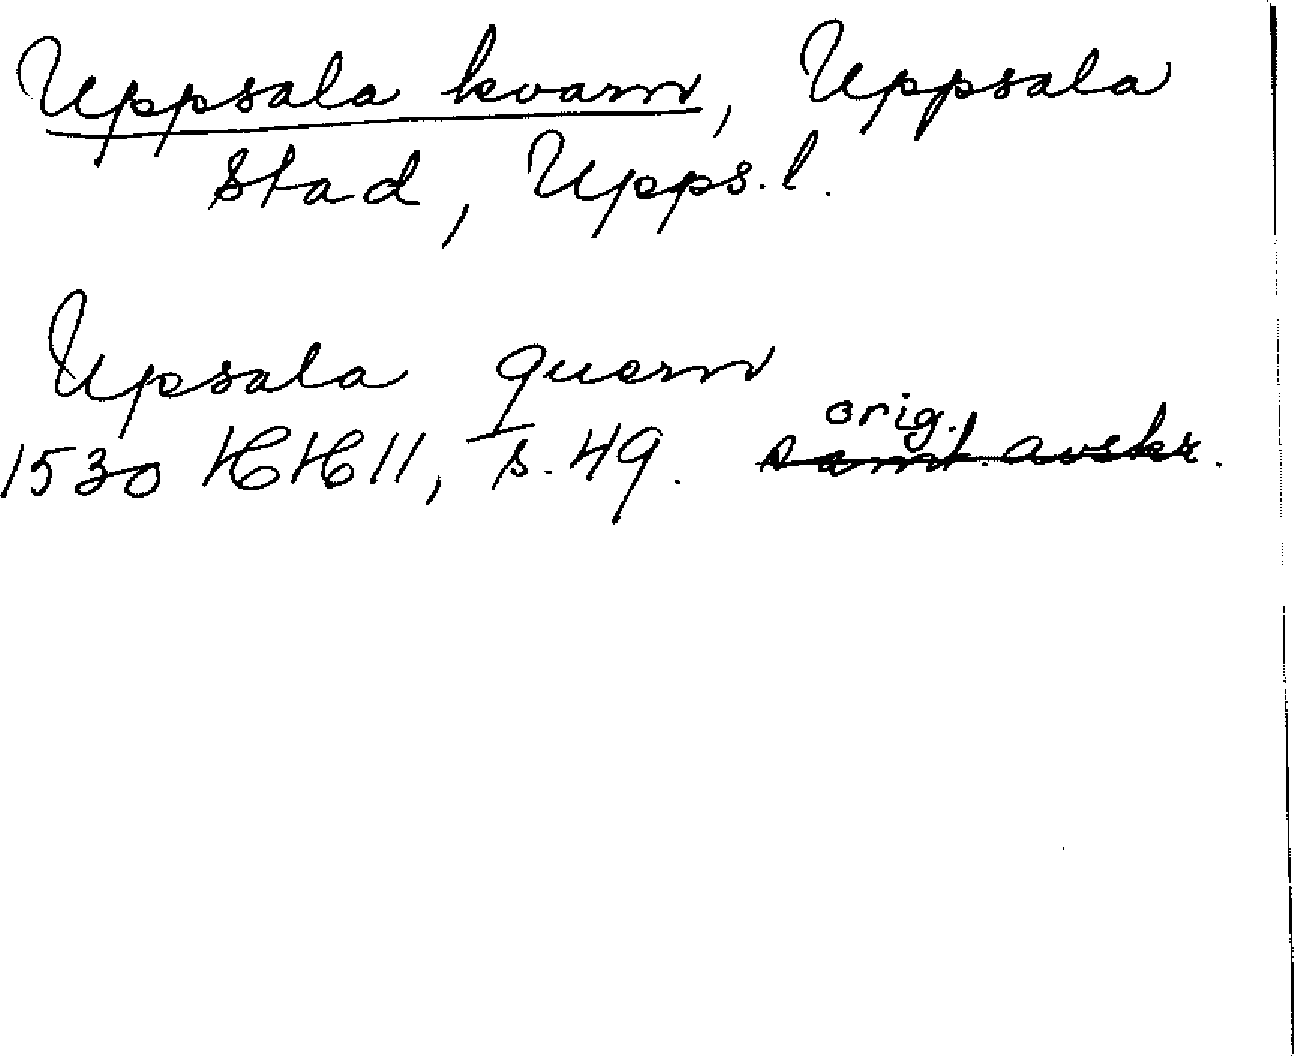 Uppsala kvarn, Uppsala
stad, Upps. l.
Upsala quern
orig.
1530 HH 11, s. 49. samt. avskr.